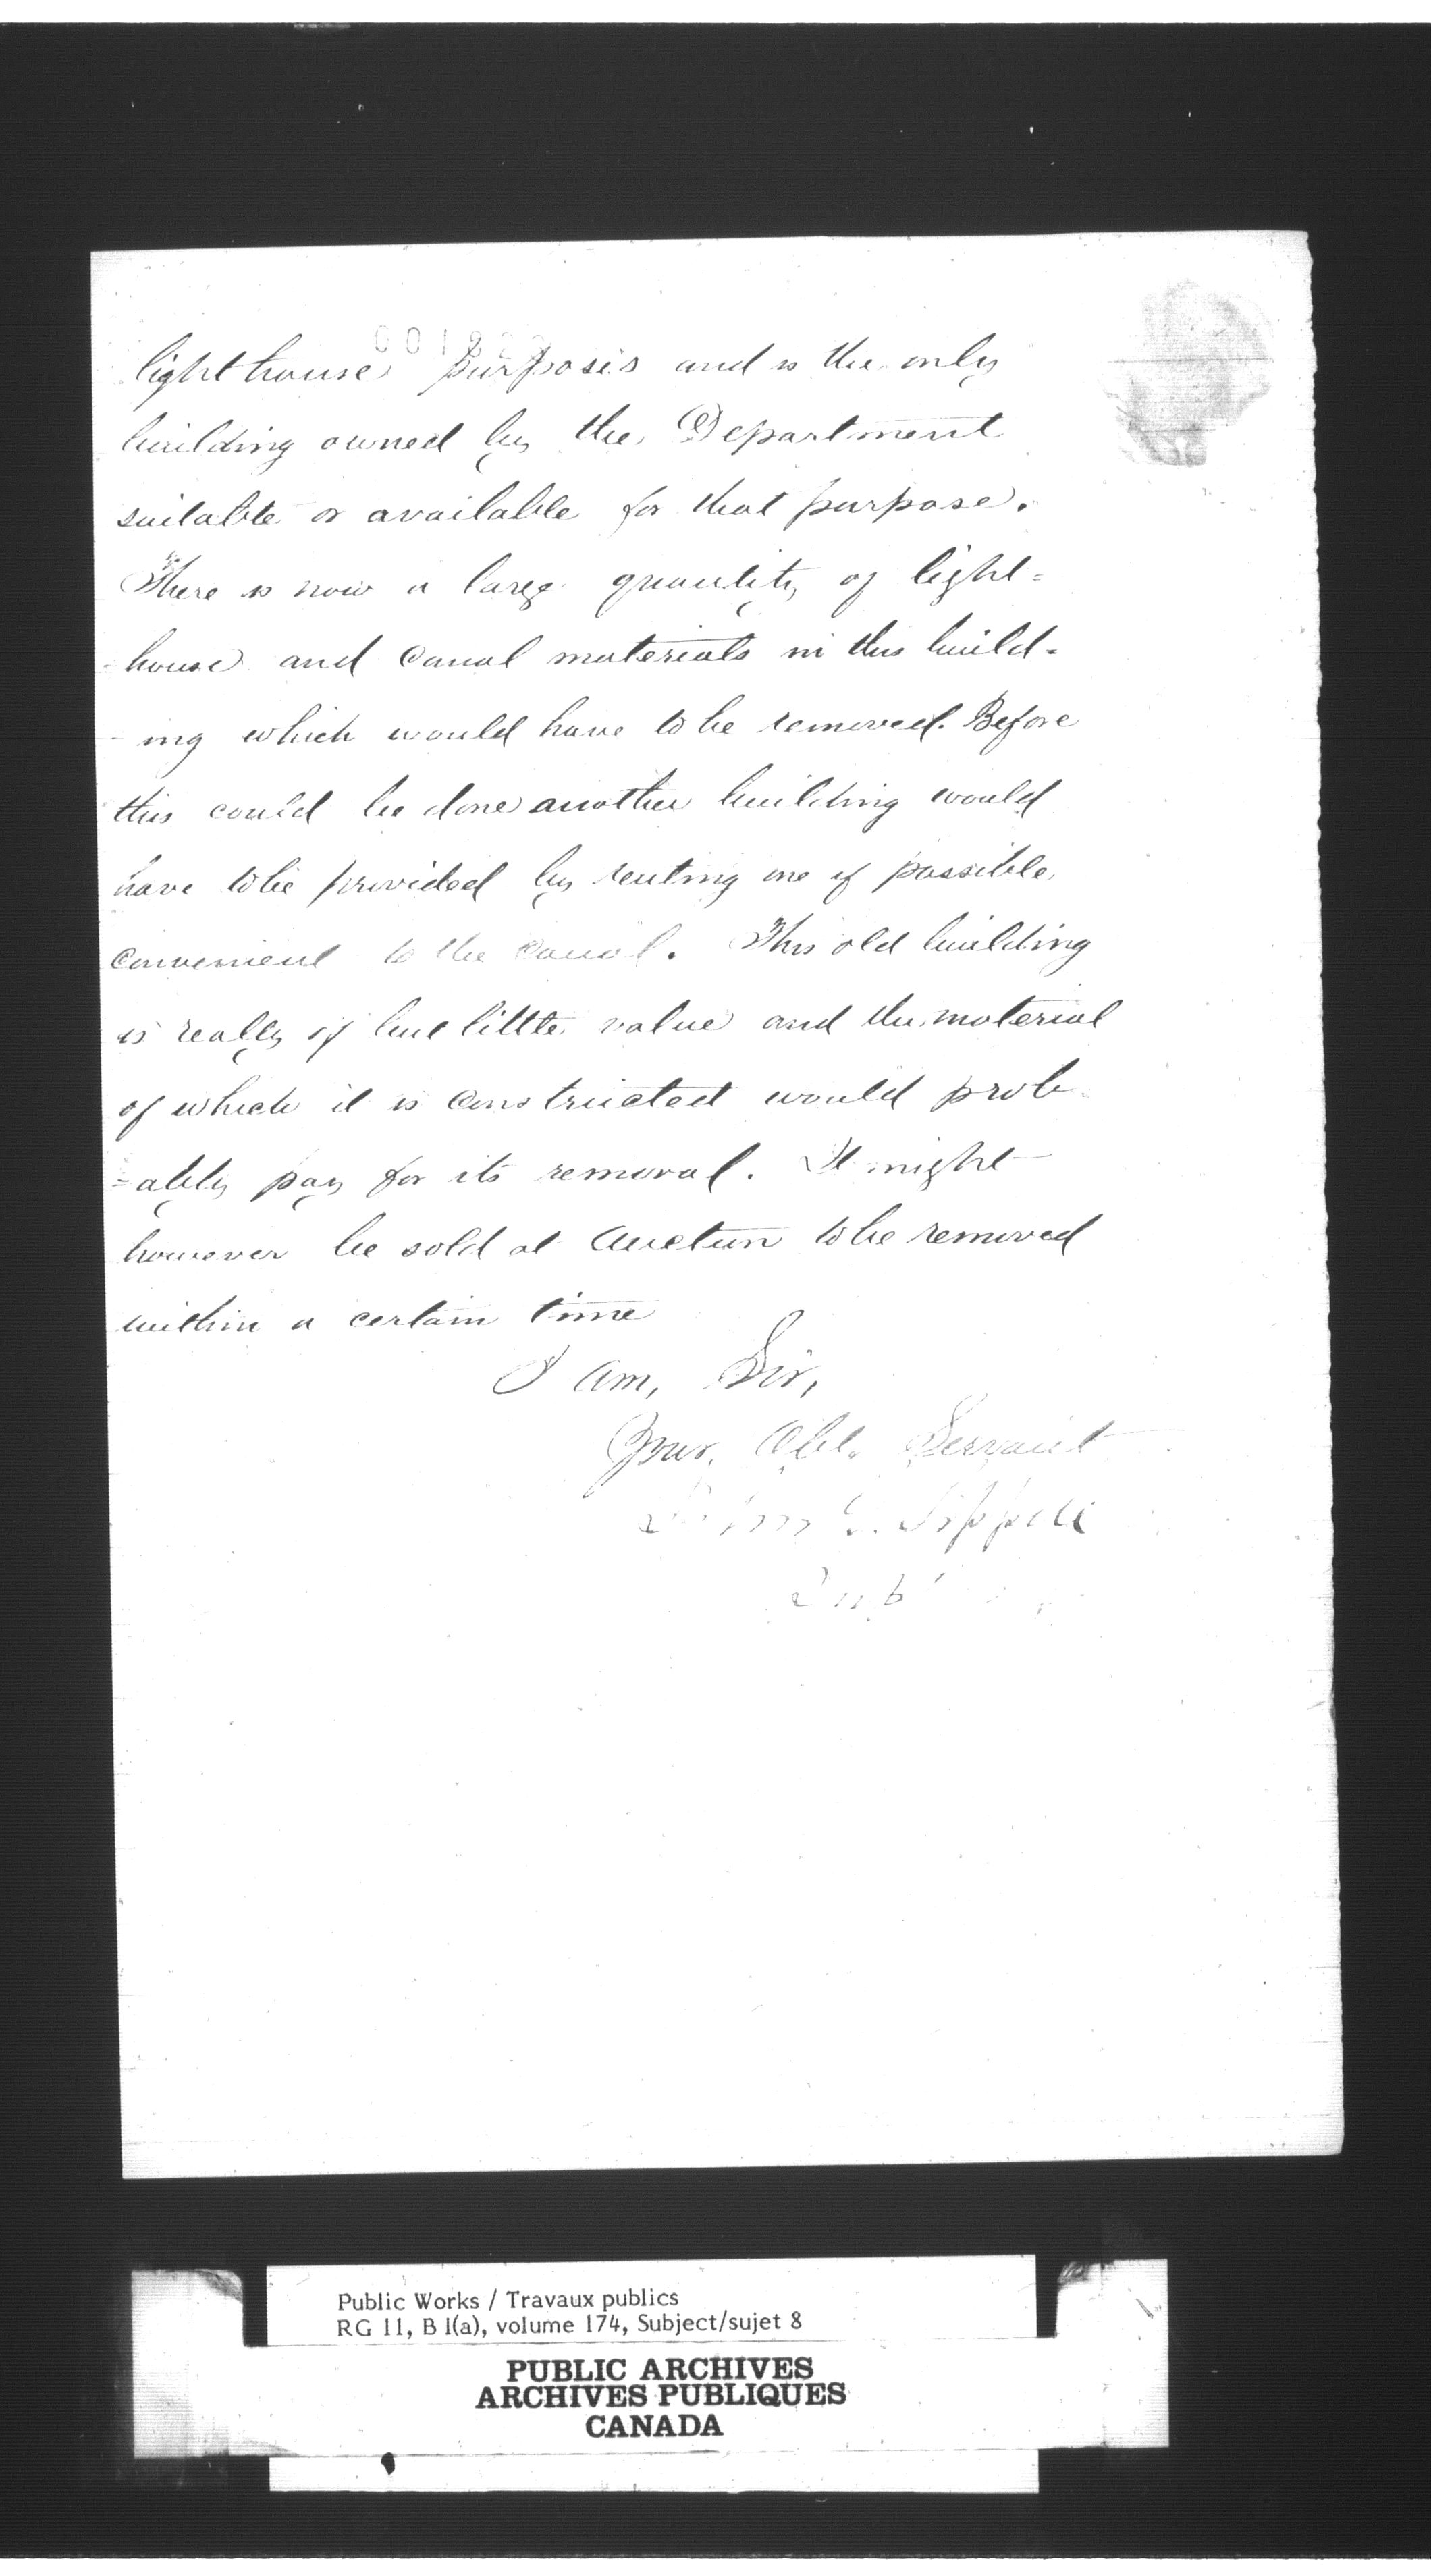 light house purposes and is the only
building owned by the Department
suitable or available for that purpose.
There is now a large quantity of light=
=house and Canal materials in this build-
-ing which would have to be removed. Before
this could be done another building would
have to be provided by renting one if possible
convenient to the Canal. This old building
is really of but little value and the material
of which it is constructed would prob-
=ably pay for its removal. It might
however be sold at Auction to be removed
within a certain time
I am, Sir,
Your Obt. Servant
John G. Sippell
Supt
Public Works / Travaux publics
RG 11, B 1(a), volume 174, Subject/sujet 8
PUBLIC ARCHIVES
ARCHIVES PUBLIQUES
CANADA